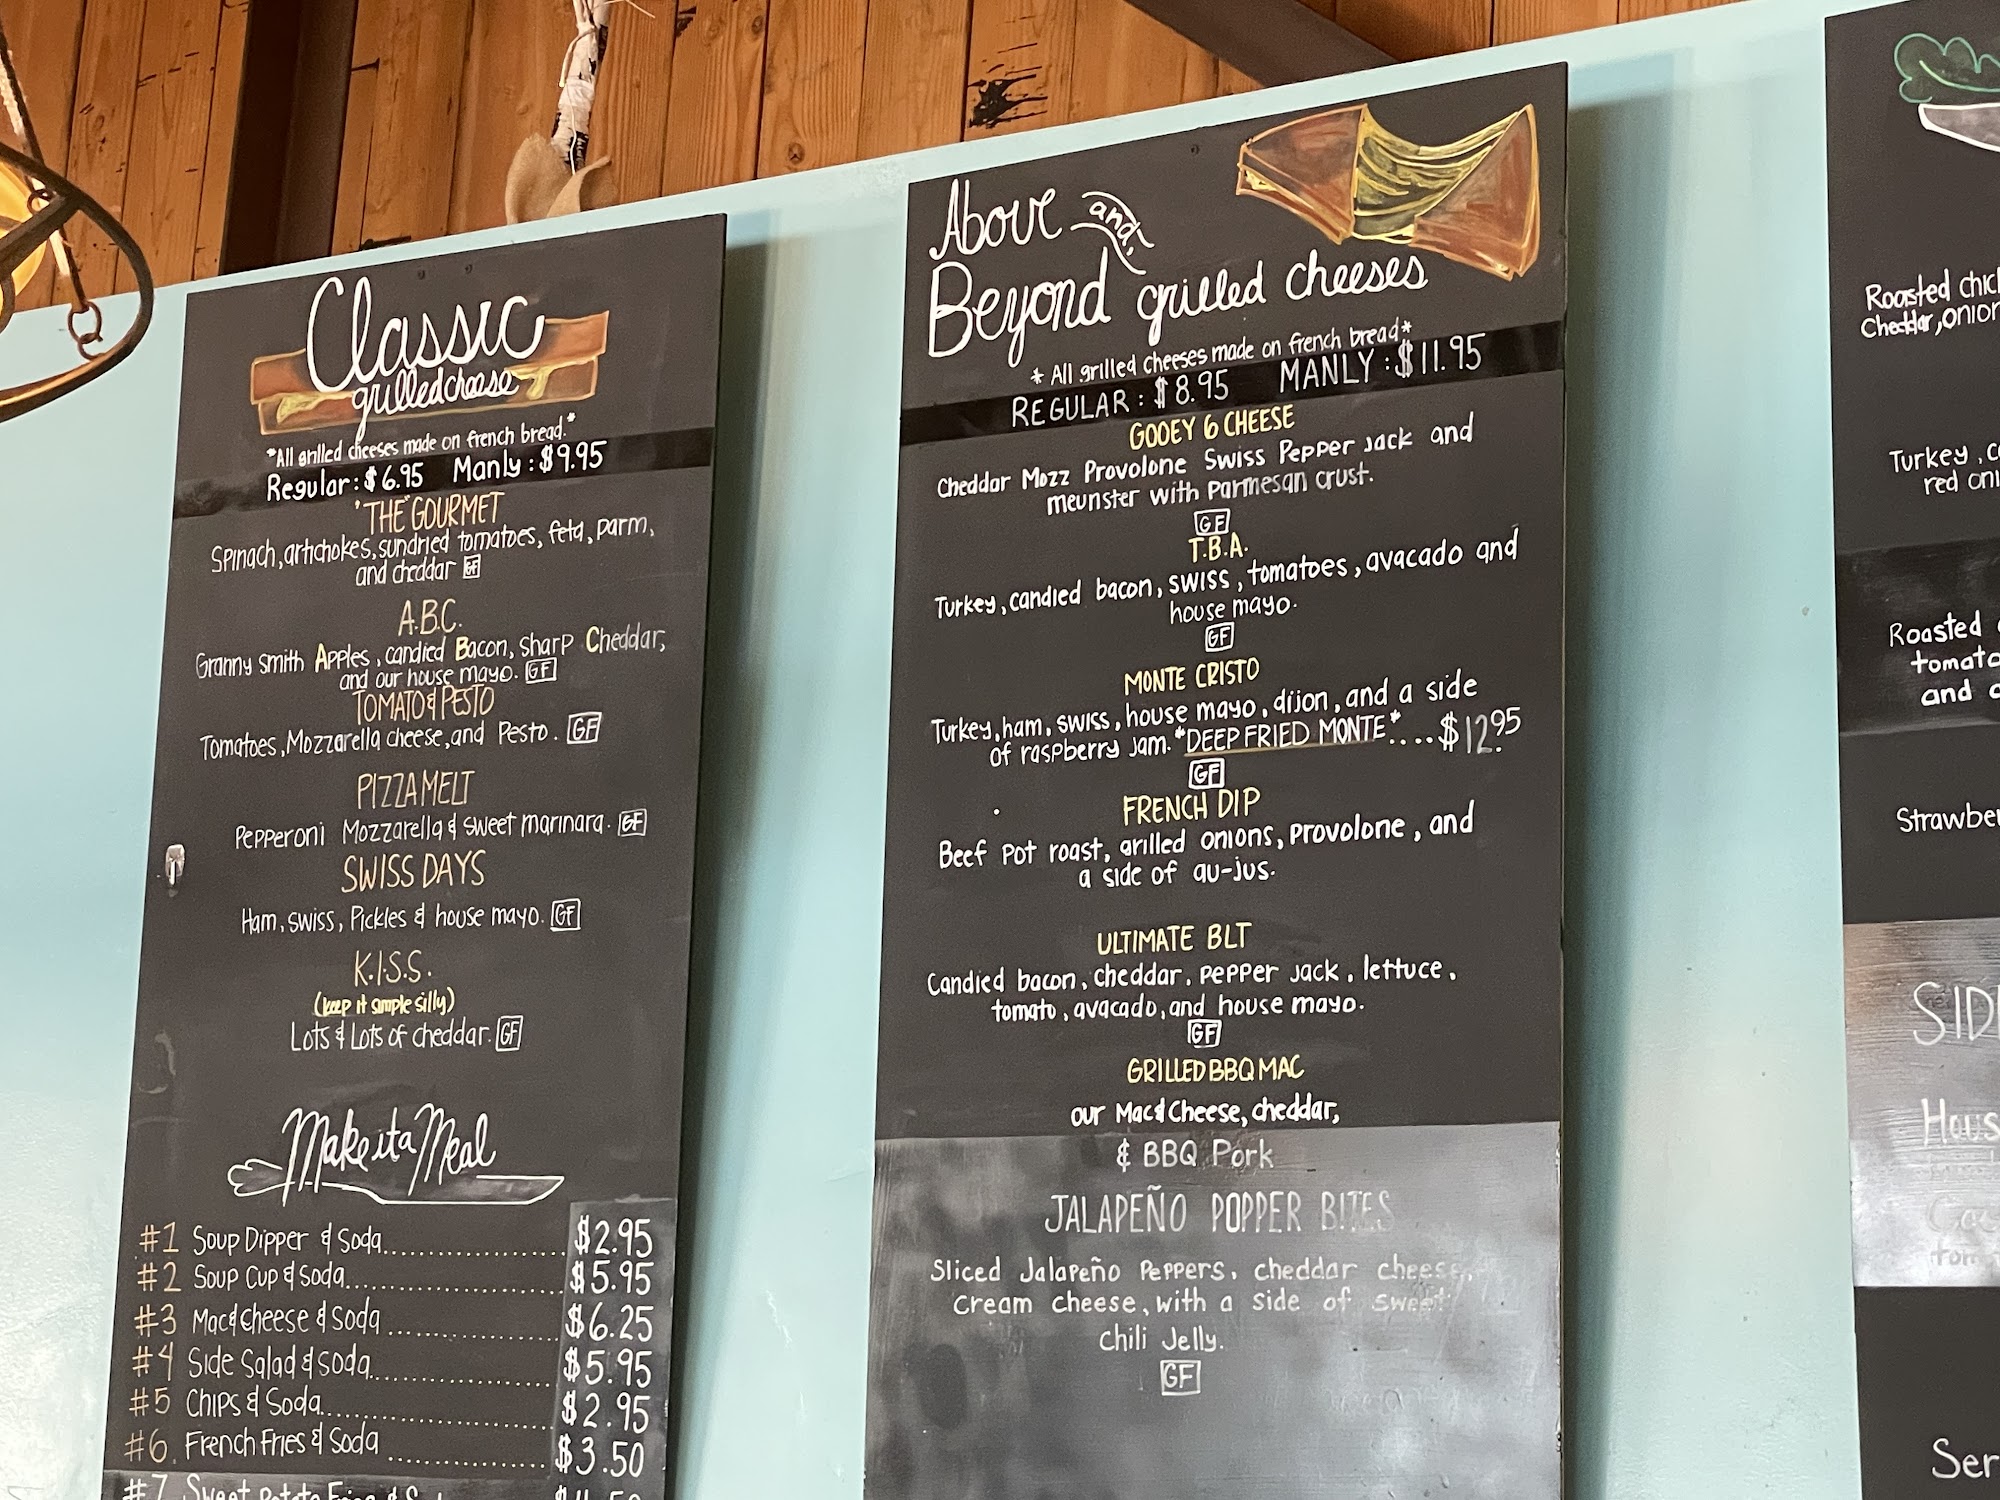 Classic
grilled cheese
*All grilled cheeses made on french bread.*
Regular: $6.95 Manly: $9.95
"THE" GOURMET
Spinach, artichokes, sundried tomatoes, feta, parm,
and cheddar GF
A.B.C.
Granny smith Apples, candied Bacon, sharp Cheddar,
and our house mayo. GF
TOMATO & PESTO
Tomatoes, Mozzarella cheese, and Pesto. GF
PIZZA MELT
Pepperoni Mozzarella & sweet marinara. GF
SWISS DAYS
Ham, swiss, Pickles & house mayo. GF
K.I.S.S.
(keep it simple silly)
Lots & Lots of cheddar. GF
Make it a Meal
#1 Soup Dipper & Soda.................... $2.95
#2 Soup Cup & Soda...................... $5.95
#3 Mac & Cheese & Soda ................. $6.25
#4 Side Salad & soda.................... $5.95
#5 Chips & Soda......................... $2.95
#6. French Fries & Soda ................ $3.50
#7 Sweet Potato Fries &
Above and
Beyond grilled cheeses
*All grilled cheeses made on french bread*
REGULAR: $8.95 MANLY: $11.95
GOOEY 6 CHEESE
Cheddar Mozz Provolone Swiss Pepper Jack and
meunster with Parmesan crust.
GF
T.B.A.
Turkey, candied bacon, swiss, tomatoes, avacado and
house mayo.
GF
MONTE CRISTO
Turkey, ham, swiss, house mayo, dijon, and a side
of raspberry jam. *DEEP FRIED MONTE*....$12.95
GF
FRENCH DIP
Beef pot roast, grilled onions, provolone, and
a side of au-jus.
ULTIMATE BLT
Candied bacon, cheddar, pepper jack, lettuce,
tomato, avacado, and house mayo.
GF
GRILLED BBQ MAC
our Mac & Cheese, cheddar,
& BBQ Pork
JALAPEÑO POPPER BITES
Sliced Jalapeño Peppers, cheddar cheese,
cream cheese, with a side of sweet
chili Jelly.
GF
Roasted
Cheddar, onion
Turkey,
red
Roasted
and